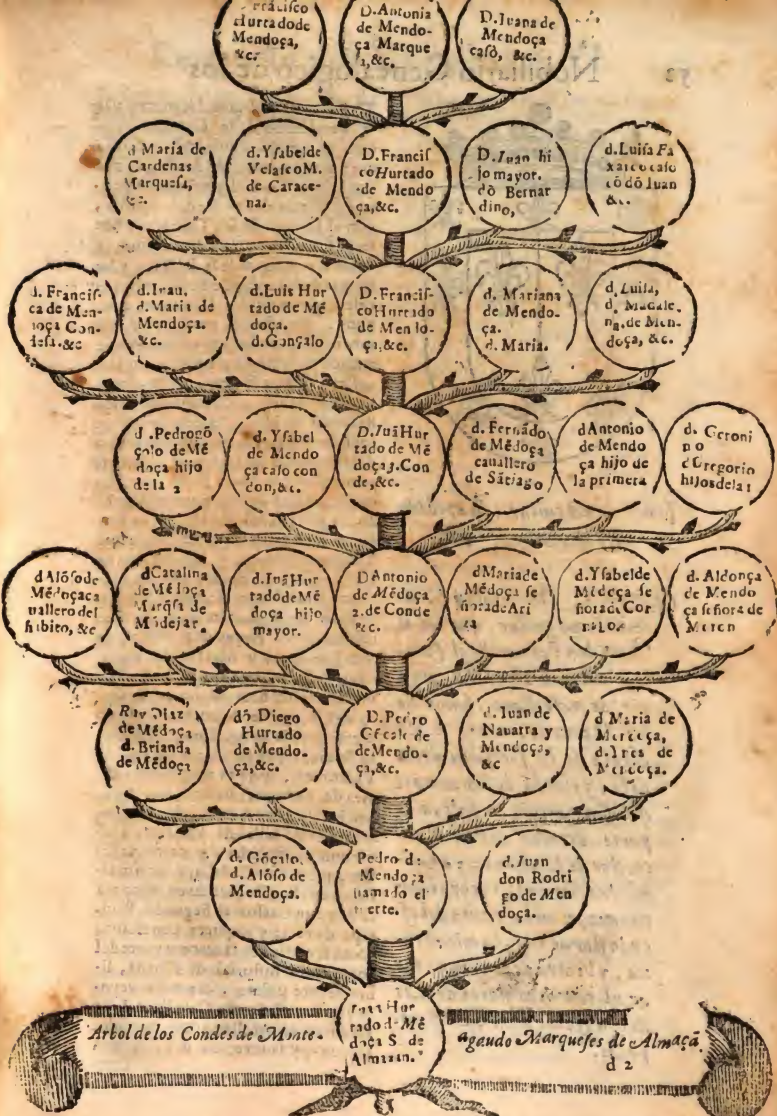 Hurtado de
Mendoça,
&c.
D. Antonia
de Mendo-
ça Marque
&c.
D. Iuana de
Mendoça
casò, &c.
Nobiliario
52
d Maria de
Cardenas
Marquesa,
&c.
d. Ysabel de
Velasco M.
de Carace-
na.
D. Francis
co Hurtado
de Mendo
ça, &c.
D. Iuan hi
jo mayor.
dō Bernar
dino,
d. Luisa Fa
xardo caso
cō dō Iuan
&c.
d. Francis-
ca de Men-
doça Con-
desa. &c
d. Iuan.
d. Maria de
Mendoça.
&c.
d. Luis Hur
tado de Mē
doça.
d. Gonçalo
D. Francis-
co Hurtado
de Mendo-
ça, &c.
d. Mariana
de Mendo-
ça.
d. Maria.
d. Luisa,
d. Magale.
na. de Men-
doça, &c.
d. Pedro gō
çalo de Mē
doça hijo
de la 2
d. Ysabel
de Mendo
ça caso con
don, &c.
D. Iuā Hur
tado de Mē
doça 3. Con
de, &c.
d. Fernādo
de Mēdoça
cauallero
de Sātiago
d Antonio
de Mendo
ça hijo de
la primera
d. Geroni
no
d Gregorio
hijos de la 1
d Alōso de
Mēdoça ca
uallero del
habito, &c
d Catalina
de Mēdoça
Marq̄sa de
Mōdejar.
d. Iuā Hur
tado de Mē
doça hijo
mayor.
D Antonio
de Mēdoça
2. de Conde
&c.
d Maria de
Mēdoça se
ñora de Ari
za
d. Ysabel de
Mēdoça se
ñora de Cor
d. Aldonça
de Mendo
ça señora de
Ruy Diaz
de Mēdoça
d. Brianda
de Mēdoça
dō Diego
Hurtado
de Mendo.
ça, &c.
D. Pedro
Gōçale de
de Mendo.
ça, &c.
d. Iuan de
Nauarra y
Mendoça,
&c
d Maria de
Mendoça,
d. Ines de
Mendoça.
d. Gōçalo.
d. Alōso de
Mendoça.
Pedro de
Mendoça
llamado el
uerte.
d. Iuan
don Rodri
go de Men
doça.
Iuan Hur
tado d. Mē
doça S. de
Almazan.
Arbol de los Condes de Monte-
agaudo Marqueses de Almaçā
d 2